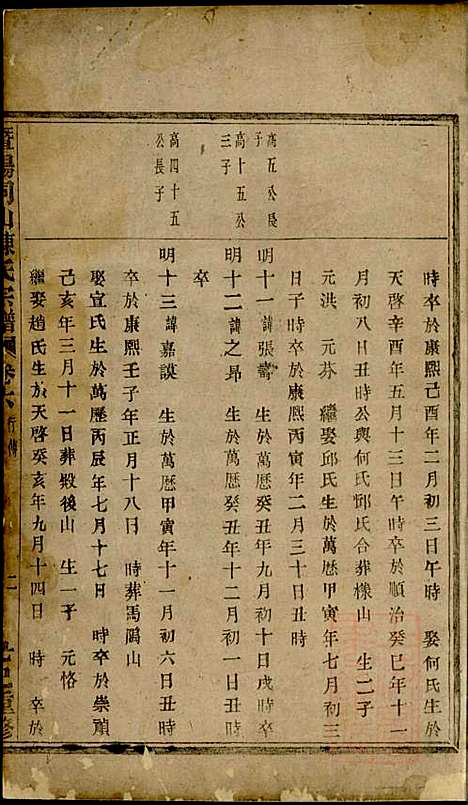 時卒於康熙己酉年二月初三日午時　娶何氏生於
天啓辛酉年五月十三日午時卒於順治癸巳年十一
月初八日丑時公與何氏邱氏合葬樣山　生二子
元洪　元芬　繼娶邱氏生於萬歷甲寅年七月初三
日子時卒於康熙丙寅年二月三十日丑時
高五公長子
明十一諱張壽　生於萬歷癸丑年九月初十日戌時卒
高十五公三子
明十二諱之昴　生於萬歷癸丑年十二月初一日丑時
卒
高四十五公長子
明十三諱嘉謨　生於萬歷甲寅年十一月初六日丑時
卒於康熙壬子年正月十八日　時葬馬鬣山
娶宣氏生於萬歷丙辰年七月十七日　時卒於崇禎
己亥年三月十一日葬殿後山　生一子　元恪
繼娶趙氏生於天啓癸亥年九月十四日　時　卒於
暨陽同山陳氏宗譜　卷六　行傳　二　重修